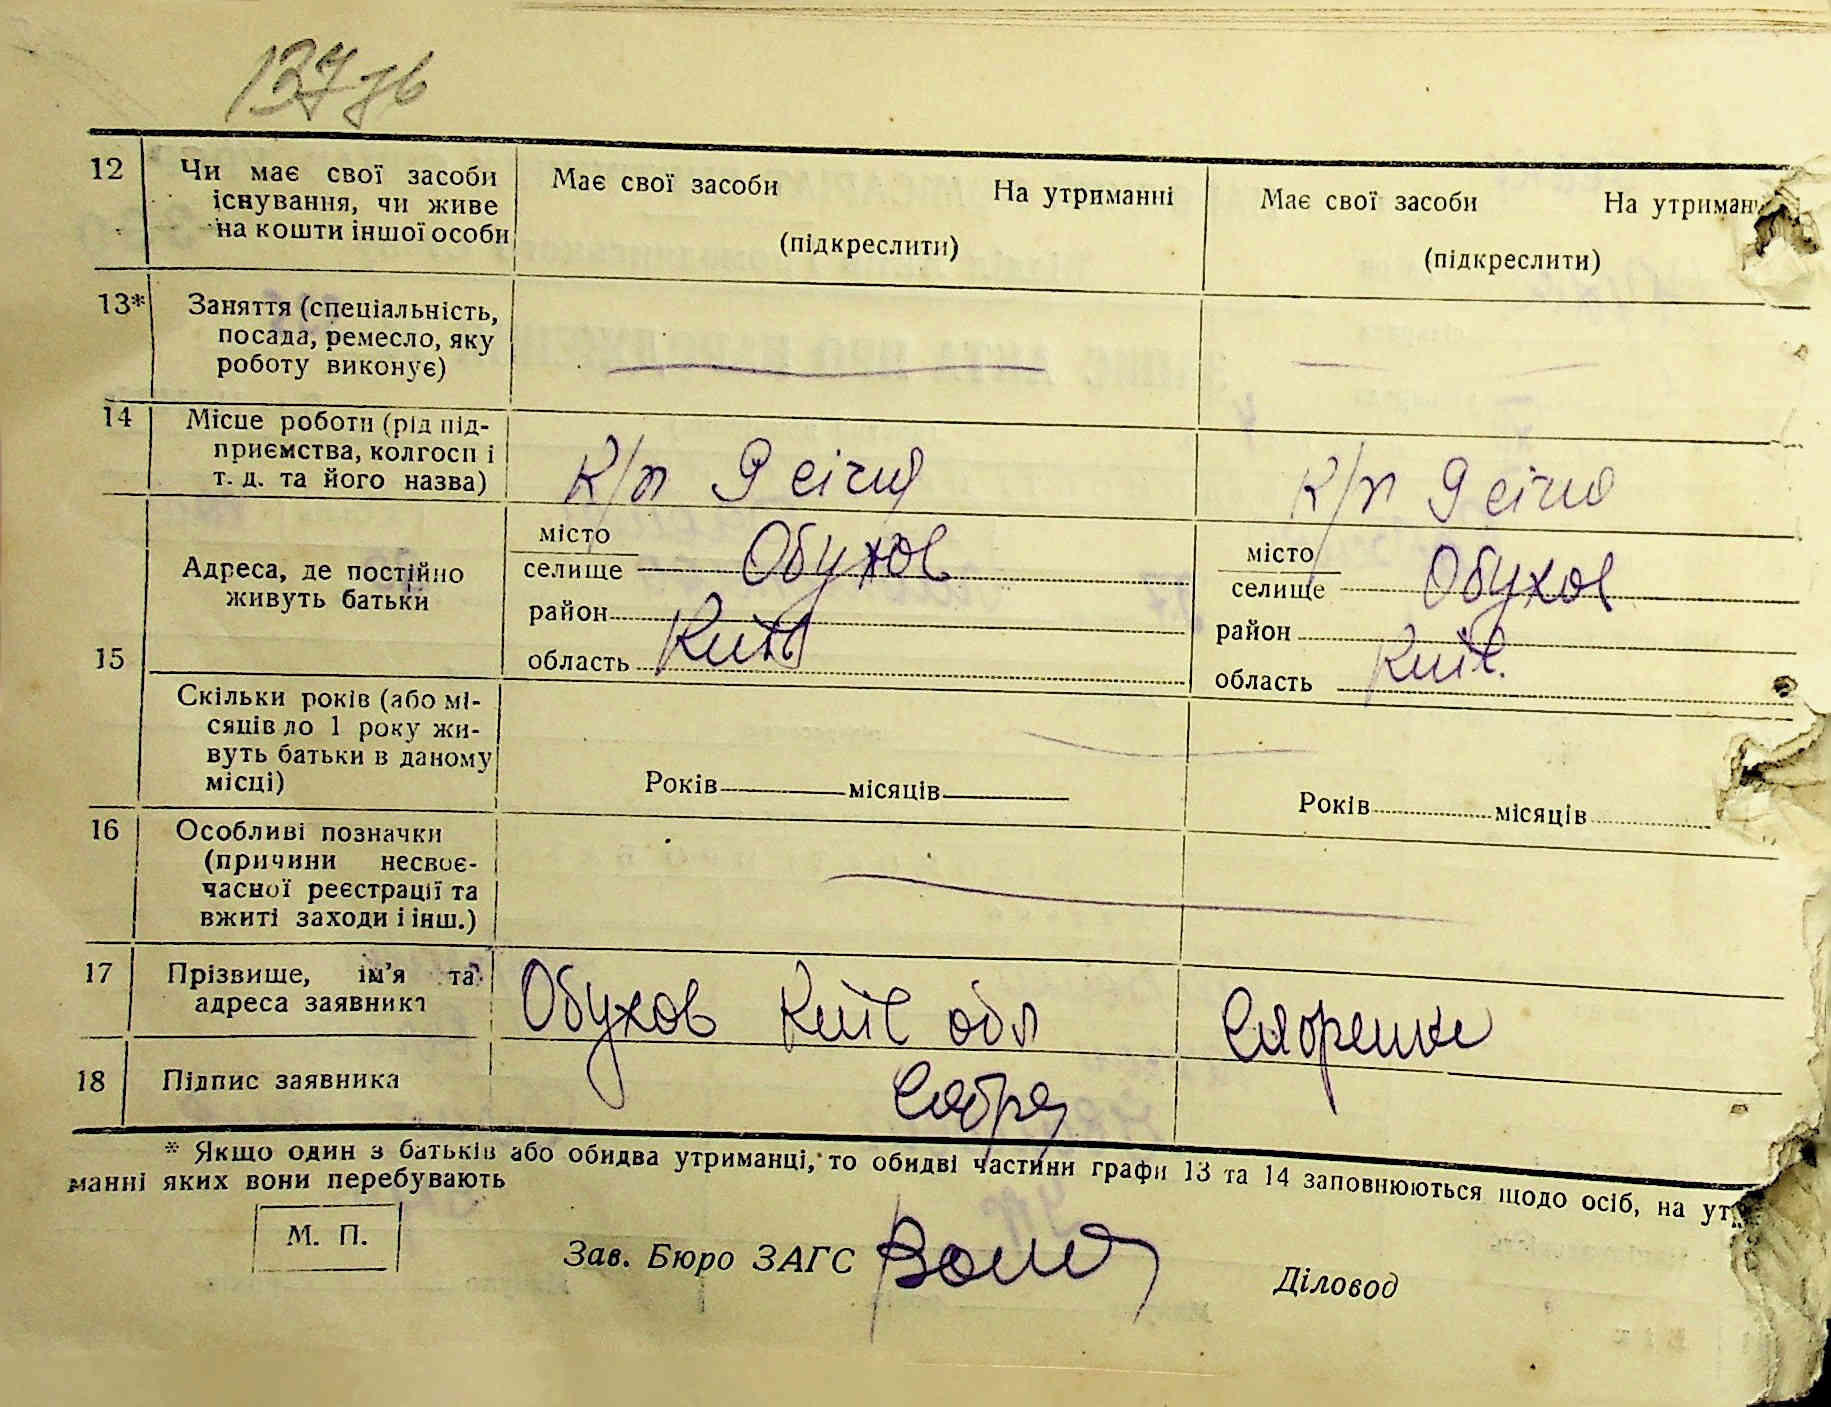 137 зв
12 Чи має свої засоби існування, чи живе на кошти іншої особи
Має свої засоби На утриманні
(підкреслити)
Має свої засоби На утриман
(підкреслити)
13* Заняття (спеціальність, посада, ремесло, яку роботу виконує)
14 Місце роботи (рід підприємства, колгосп і т. д. та його назва)
К/г 9 січня
К/г 9 січня
15
Адреса, де постійно живуть батьки
місто
селище Обухов
район
область Київ
місто
селище Обухов
район
область Київ.
Скільки років (або місяців до 1 року живуть батьки в даному місці)
Років місяців
Років місяців
16 Особливі позначки (причини несвоєчасної реєстрації та вжиті заходи і інш.)
17 Прізвище, ім'я та адреса заявника
Обухов Київ обл
18 Підпис заявника
* Якщо один з батьків або обидва утриманці, то обидві частини графи 13 та 14 заповнюються щодо осіб, на ут
манні яких вони перебувають
М. П.
Зав. Бюро ЗАГС
Діловод